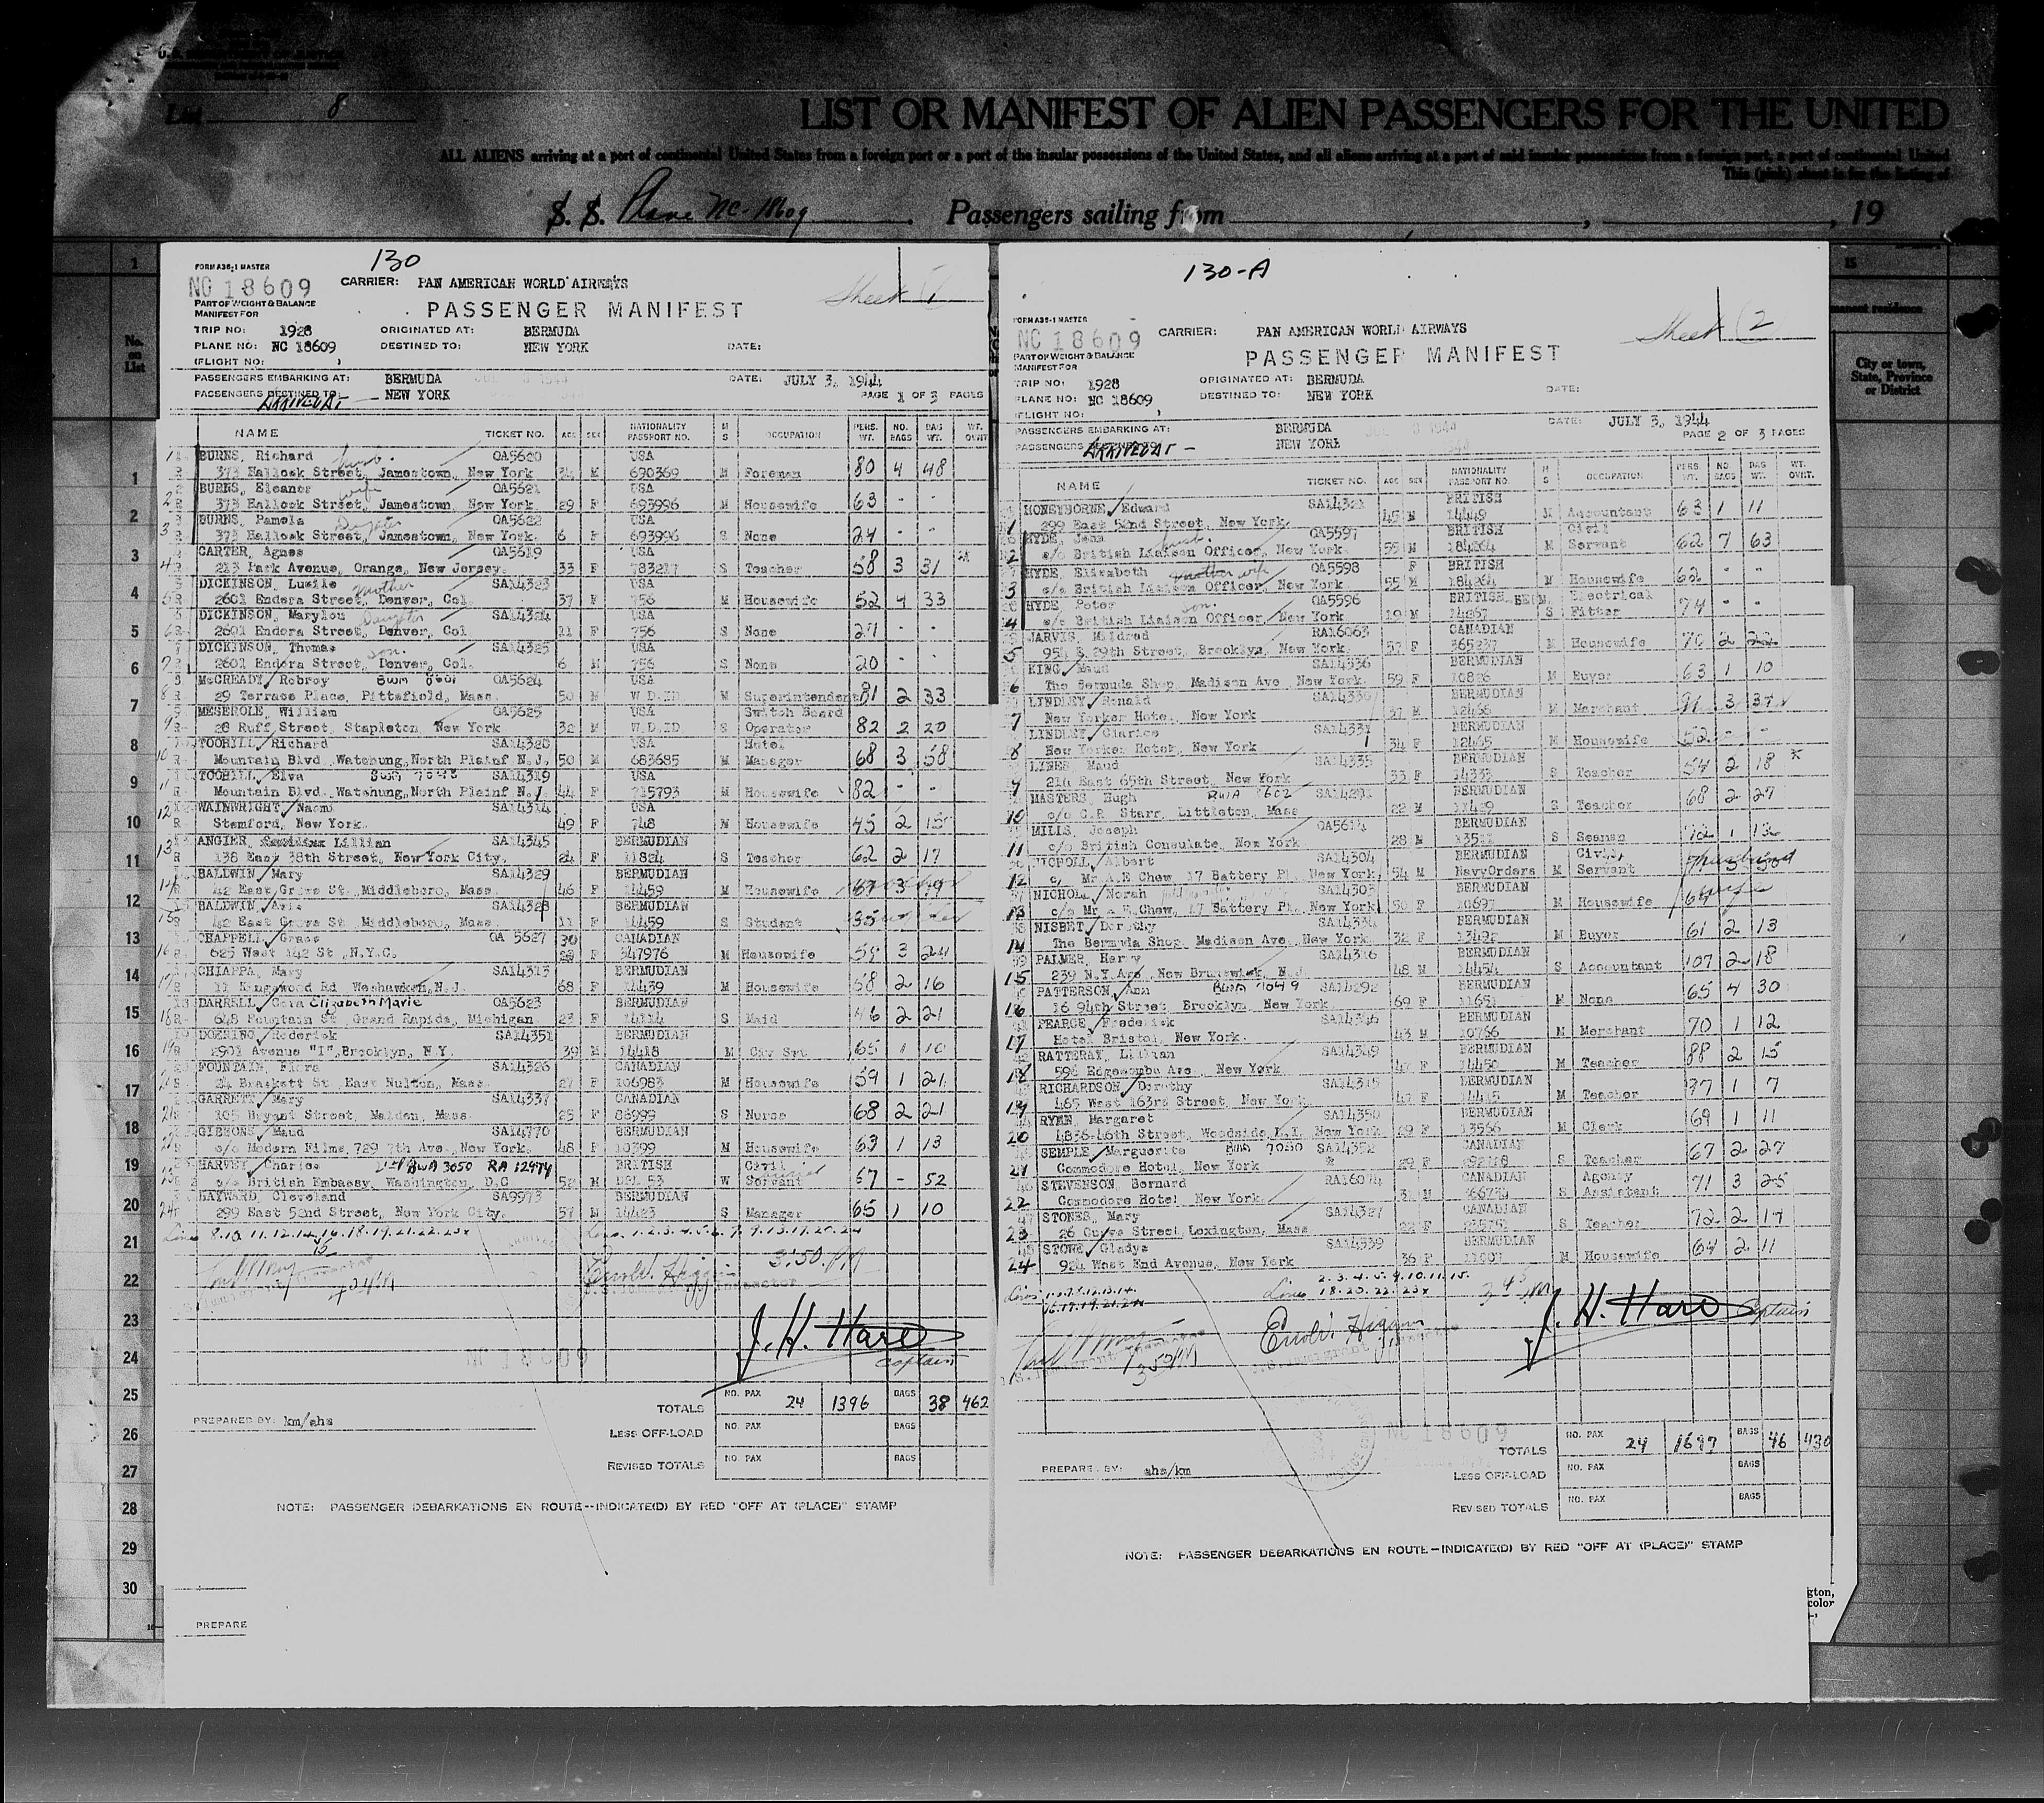 List 8
LIST OR MANIFEST OF ALIEN PASSENGERS FOR THE UNITED
ALL ALIENS arriving at a port of continental United States from a foreign port or a port of the insular possessions of the United States, and all aliens arriving at a port of said insular possessions from a foreign port, a port of continental United
This (pink) sheet is for the listing of
S. S. Plane NC-18609 Passengers sailing from , , 19
130
FORM A35-1 MASTER
NC 18609
CARRIER: PAN AMERICAN WORLD AIRWAYS
Sheet 1
PART OF WEIGHT & BALANCE
MANIFEST FOR
PASSENGER MANIFEST
TRIP NO: 1928 ORIGINATED AT: BERMUDA
PLANE NO: NC 18609 DESTINED TO: NEW YORK DATE:
(FLIGHT NO: )
PASSENGERS EMBARKING AT: BERMUDA DATE: JULY 3, 1944
PASSENGERS DESTINED TO: NEW YORK PAGE 1 OF 3 PAGES
ARRIVED AT
NAME TICKET NO. AGE SEX NATIONALITY PASSPORT NO. M S OCCUPATION PERS. WT. NO. BAGS BAG WT. WT. OVNT
1 BURNS, Richard husb. OA5620 USA
373 Hallock Street, Jamestown, New York M 690369 M Foreman 80 4 48
2 BURNS, Eleanor wife OA5621 USA
373 Hallock Street, Jamestown, New York 29 F 695996 M Housewife 63 - -
3 BURNS, Pamela Daughter OA5622 USA
373 Hallock Street, Jamestown, New York. 6 F 693996 S None 24 - -
4 CARTER, Agnes OA5619 USA
213 Park Avenue, Orange, New Jersey. 33 F S Teacher 58 3 31
5 DICKINSON, Lucile mother SA14323 USA
2601 Endora Street, Denver, Col. 37 F 756 M Housewife 52 4 33
6 DICKINSON, Marylou Daughter SA14324 USA
2601 Endora Street, Denver, Col 11 F 756 S None 27 - -
7 DICKINSON, Thomas son. SA14325 USA
2601 Endora Street, Denver, Col. 6 M 756 S None 20 - -
8 McCREADY, Robroy OA5624 USA
29 Terrace Place, Pittsfield, Mass. 50 M W.D.ID M Superintendent 81 2 33
9 MESEROLE, William OA5625 USA Switch Board
28 Ruff Street, Stapleton, New York 32 M W.D.ID S Operator 82 2 20
10 TOOHILL, Richard SA14320 USA Hotel
Mountain Blvd. Watchung, North Plainf N.J. 50 M 683685 M Manager 68 3 58
11 TOOHILL, Elva SA14319 USA
Mountain Blvd. Watchung, North Plainf N.J. 44 F 715793 M Housewife 82 - -
12 WAINWRIGHT, Naomi SA14314 USA
Stamford, New York. 49 F 748 M Housewife 45 2 15
13 ANGIER, Lillian SA14345 BERMUDIAN
138 East 38th Street, New York City. 24 F 11824 S Teacher 62 2 17
14 BALDWIN, Mary SA14329 BERMUDIAN
42 East Grove St. Middleboro, Mass. 46 F 14459 M Housewife 67 3 49
15 BALDWIN, Avis SA14328 BERMUDIAN
42 East Grove St Middleboro, Mass. 11 F 14459 S Student 35
16 CHAPPELL, Grace OA 5627 30 CANADIAN
625 West 142 St., N.Y.C. F 347976 M Housewife 59 3 24
17 CHIAPPA, Mary SA14313 BERMUDIAN
11 Kingswood Rd Weehawken, N.J. 68 F 14439 M Housewife 58 2 16
18 DARRELL, Cora Elizabeth Marie OA5623 BERMUDIAN
648 Fountain St Grand Rapids, Michigan 23 F 14114 S Maid 46 2 21
19 DOERING, Roderick SA14351 BERMUDIAN
2901 Avenue "I", Brooklyn, N.Y. 39 M 14418 M Civ Srt. 65 1 10
FOUNTAIN, Flora SA14326 CANADIAN
24 Brackett St, East Nulton, Mass. 27 F 106983 M Housewife 59 1 21
21 GARRETT, Mary SA14337 CANADIAN
105 Bryant Street, Malden, Mass. 25 F 86999 S Nurse 68 2 21
GIBBONS, Maud SA14770 BERMUDIAN
c/o Modern Films, 729 7th Ave. New York. 48 F 10399 M Housewife 63 1 13
HARVEY, Charles BWA 3050 RA 12474 BRITISH Civil
c/o British Embassy, Washington, D.C. 52 M 53 W Servant 67 - 52
24 HAYWARD, Cleveland SA9973 BERMUDIAN
299 East 52nd Street, New York City. 57 M 14423 S Manager 65 1 10
3:50 PM
J. H. Hare
Captain
TOTALS NO. PAX 24 1396 BAGS 38 462
PREPARED BY: km/ahs
LESS OFF-LOAD NO. PAX BAGS
REVISED TOTALS NO. PAX BAGS
NOTE: PASSENGER DEBARKATIONS EN ROUTE--INDICATE(D) BY RED "OFF AT (PLACE)" STAMP
PREPARE
130-A
FORM A35-1 MASTER
NC 18609
CARRIER: PAN AMERICAN WORLD AIRWAYS
Sheet 2
PART OF WEIGHT & BALANCE
MANIFEST FOR
PASSENGER MANIFEST
TRIP NO: 1928 ORIGINATED AT: BERMUDA
PLANE NO: NC 18609 DESTINED TO: NEW YORK DATE:
(FLIGHT NO: )
PASSENGERS EMBARKING AT: BERMUDA DATE: JULY 3, 1944
PASSENGERS NEW YORK PAGE 2 OF 3 PAGES
ARRIVED AT -
NAME TICKET NO. AGE SEX NATIONALITY PASSPORT NO. M S OCCUPATION PERS. WT. NO BAGS BAG WT. WT. OVNT.
1 MONEYHORNE, Edward SA14321 BRITISH
299 East 52nd Street, New York. 45 M 14449 M Accountant 63 1 11
2 HYDE, John husb. OA5597 BRITISH Civil
c/o British Liaison Officer, New York. 55 M 184264 M Servant 62 7 63
3 HYDE, Elizabeth mother wife OA5598 F BRITISH
c/o British Liaison Officer, New York. 55 M 184264 M Housewife 62 - -
4 HYDE, Peter son. OA5596 BRITISH Electrical
c/o British Liaison Officer, New York 19 M S Fitter 74 - -
5 JARVIS, Mildred RA16063 CANADIAN
954 E 29th Street, Brooklyn, New York. 57 F 365237 M Housewife 70 2 22
6 KING, Maud SA14336 BERMUDIAN
The Bermuda Shop, Madison Ave. New York. 59 F 10826 M Buyer 63 1 10
7 LINDLEY, Ronald BERMUDIAN
New Yorker Hotel, New York 37 M 12466 M Merchant 91 3 37
8 LINDLEY, Clarice BERMUDIAN
New Yorker Hotel, New York 34 F 12465 M Housewife 52 - -
9 LYNES, Maud SA14335 BERMUDIAN
214 East 65th Street, New York 33 F 14333 S Teacher 54 2 18
10 MASTERS, Hugh BERMUDIAN
c/o C.R. Starr, Littleton, Mass 22 M S Teacher 68 2 27
11 MILLS, Joseph BERMUDIAN
c/o British Consulate, New York 28 M S Seaman 72 1 12
12 NICHOLL, Albert SA14304 BERMUDIAN Civil
Mr. A.E Chew, 17 Battery Pl. New York. 54 M NavyOrders M Servant
13 NICHOLL, Norah SA14303 BERMUDIAN
c/o Mr. A E. Chew, 17 Battery Pl. New York 50 F 10697 M Housewife
14 NISBET, Dorothy BERMUDIAN
The Bermuda Shop, Madison Ave. New York 32 F 13492 M Buyer 61 2 13
15 PALMER, Harry SA14316 BERMUDIAN
239 N.Y.Ave, New Brunswick, N.J. 48 M 14454 S Accountant 107 2 18
16 PATTERSON, Ann BWA 7049 SA14292 BERMUDIAN
16 94th Street, Brooklyn, New York. 69 F 11651 M None 65 4 30
17 PEARCE, Frederick BERMUDIAN
Hotel Bristol, New York. 43 M 10766 M Merchant 70 1 12
18 RATTERAY, Lillian SA14349 BERMUDIAN
596 Edgecombe Ave., New York F 14450 M Teacher 88 2 15
19 RICHARDSON, Dorothy SA14315 BERMUDIAN
465 West 163rd Street, New York 47 F 14415 M Teacher 97 1 7
20 RYAN, Margaret SA14350 BERMUDIAN
4836-46th Street, Woodside, L.I. New York 29 F 13566 M Clerk 69 1 11
21 SEMPLE, Marguerite BWA 7050 SA14352 CANADIAN
Commodore Hotel, New York 29 F S Teacher 67 2 27
22 STEVENSON, Bernard RA16074 CANADIAN Agency
Commodore Hotel, New York. M S Assistant 71 3 25
23 STONES, Mary SA14327 CANADIAN
26 Curve Street, Lexington, Mass. 22 F S Teacher 72 2 17
24 STOWE, Gladys SA14339 BERMUDIAN
924 West End Avenue, New York 36 F M Housewife 64 2 11
J. H. Hare Captain
NC 18609
TOTALS NO. PAX 24 1697 BAGS 46 430
PREPARE BY: ahs/km
LESS OFF-LOAD NO. PAX BAGS
REVISED TOTALS NO. PAX BAGS
NOTE: PASSENGER DEBARKATIONS EN ROUTE—INDICATE(D) BY RED "OFF AT (PLACE)" STAMP
No. on List
1
1
2
3
4
5
6
7
8
9
10
11
12
13
14
15
16
17
18
19
20
21
22
23
24
25
26
27
28
29
30
15
manent residence
City or town, State, Province or District
gton,
color